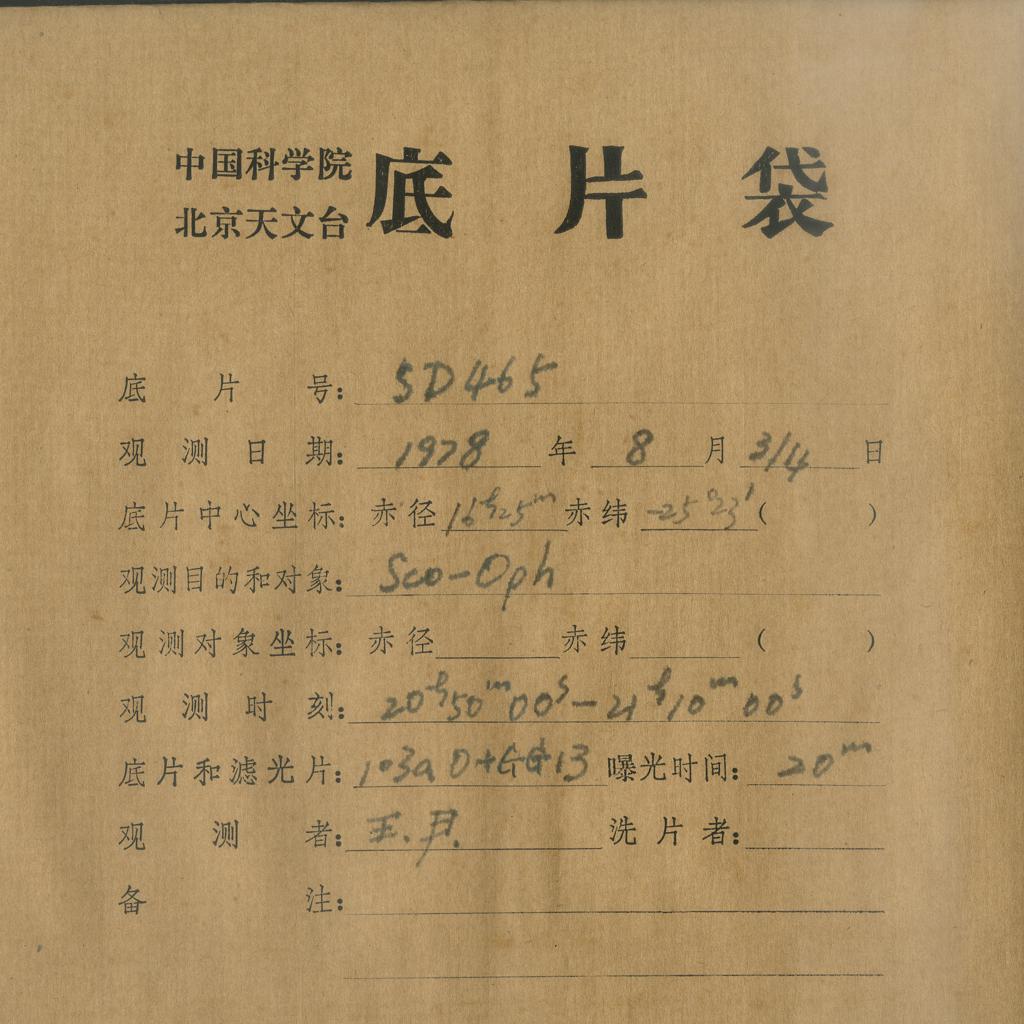 中国科学院
北京天文台
底片袋
底片号: SD465
观测日期: 1978年8月3/4日
底片中心坐标: 赤径16h25m赤纬-25°23′( )
观测目的和对象: Sco-Oph
观测对象坐标: 赤径 赤纬 ( )
观测时刻: 20h50m00s-21h10m00s
底片和滤光片: 103aO+GG13 曝光时间: 20m
观测者: 王. 洗片者:
备注: